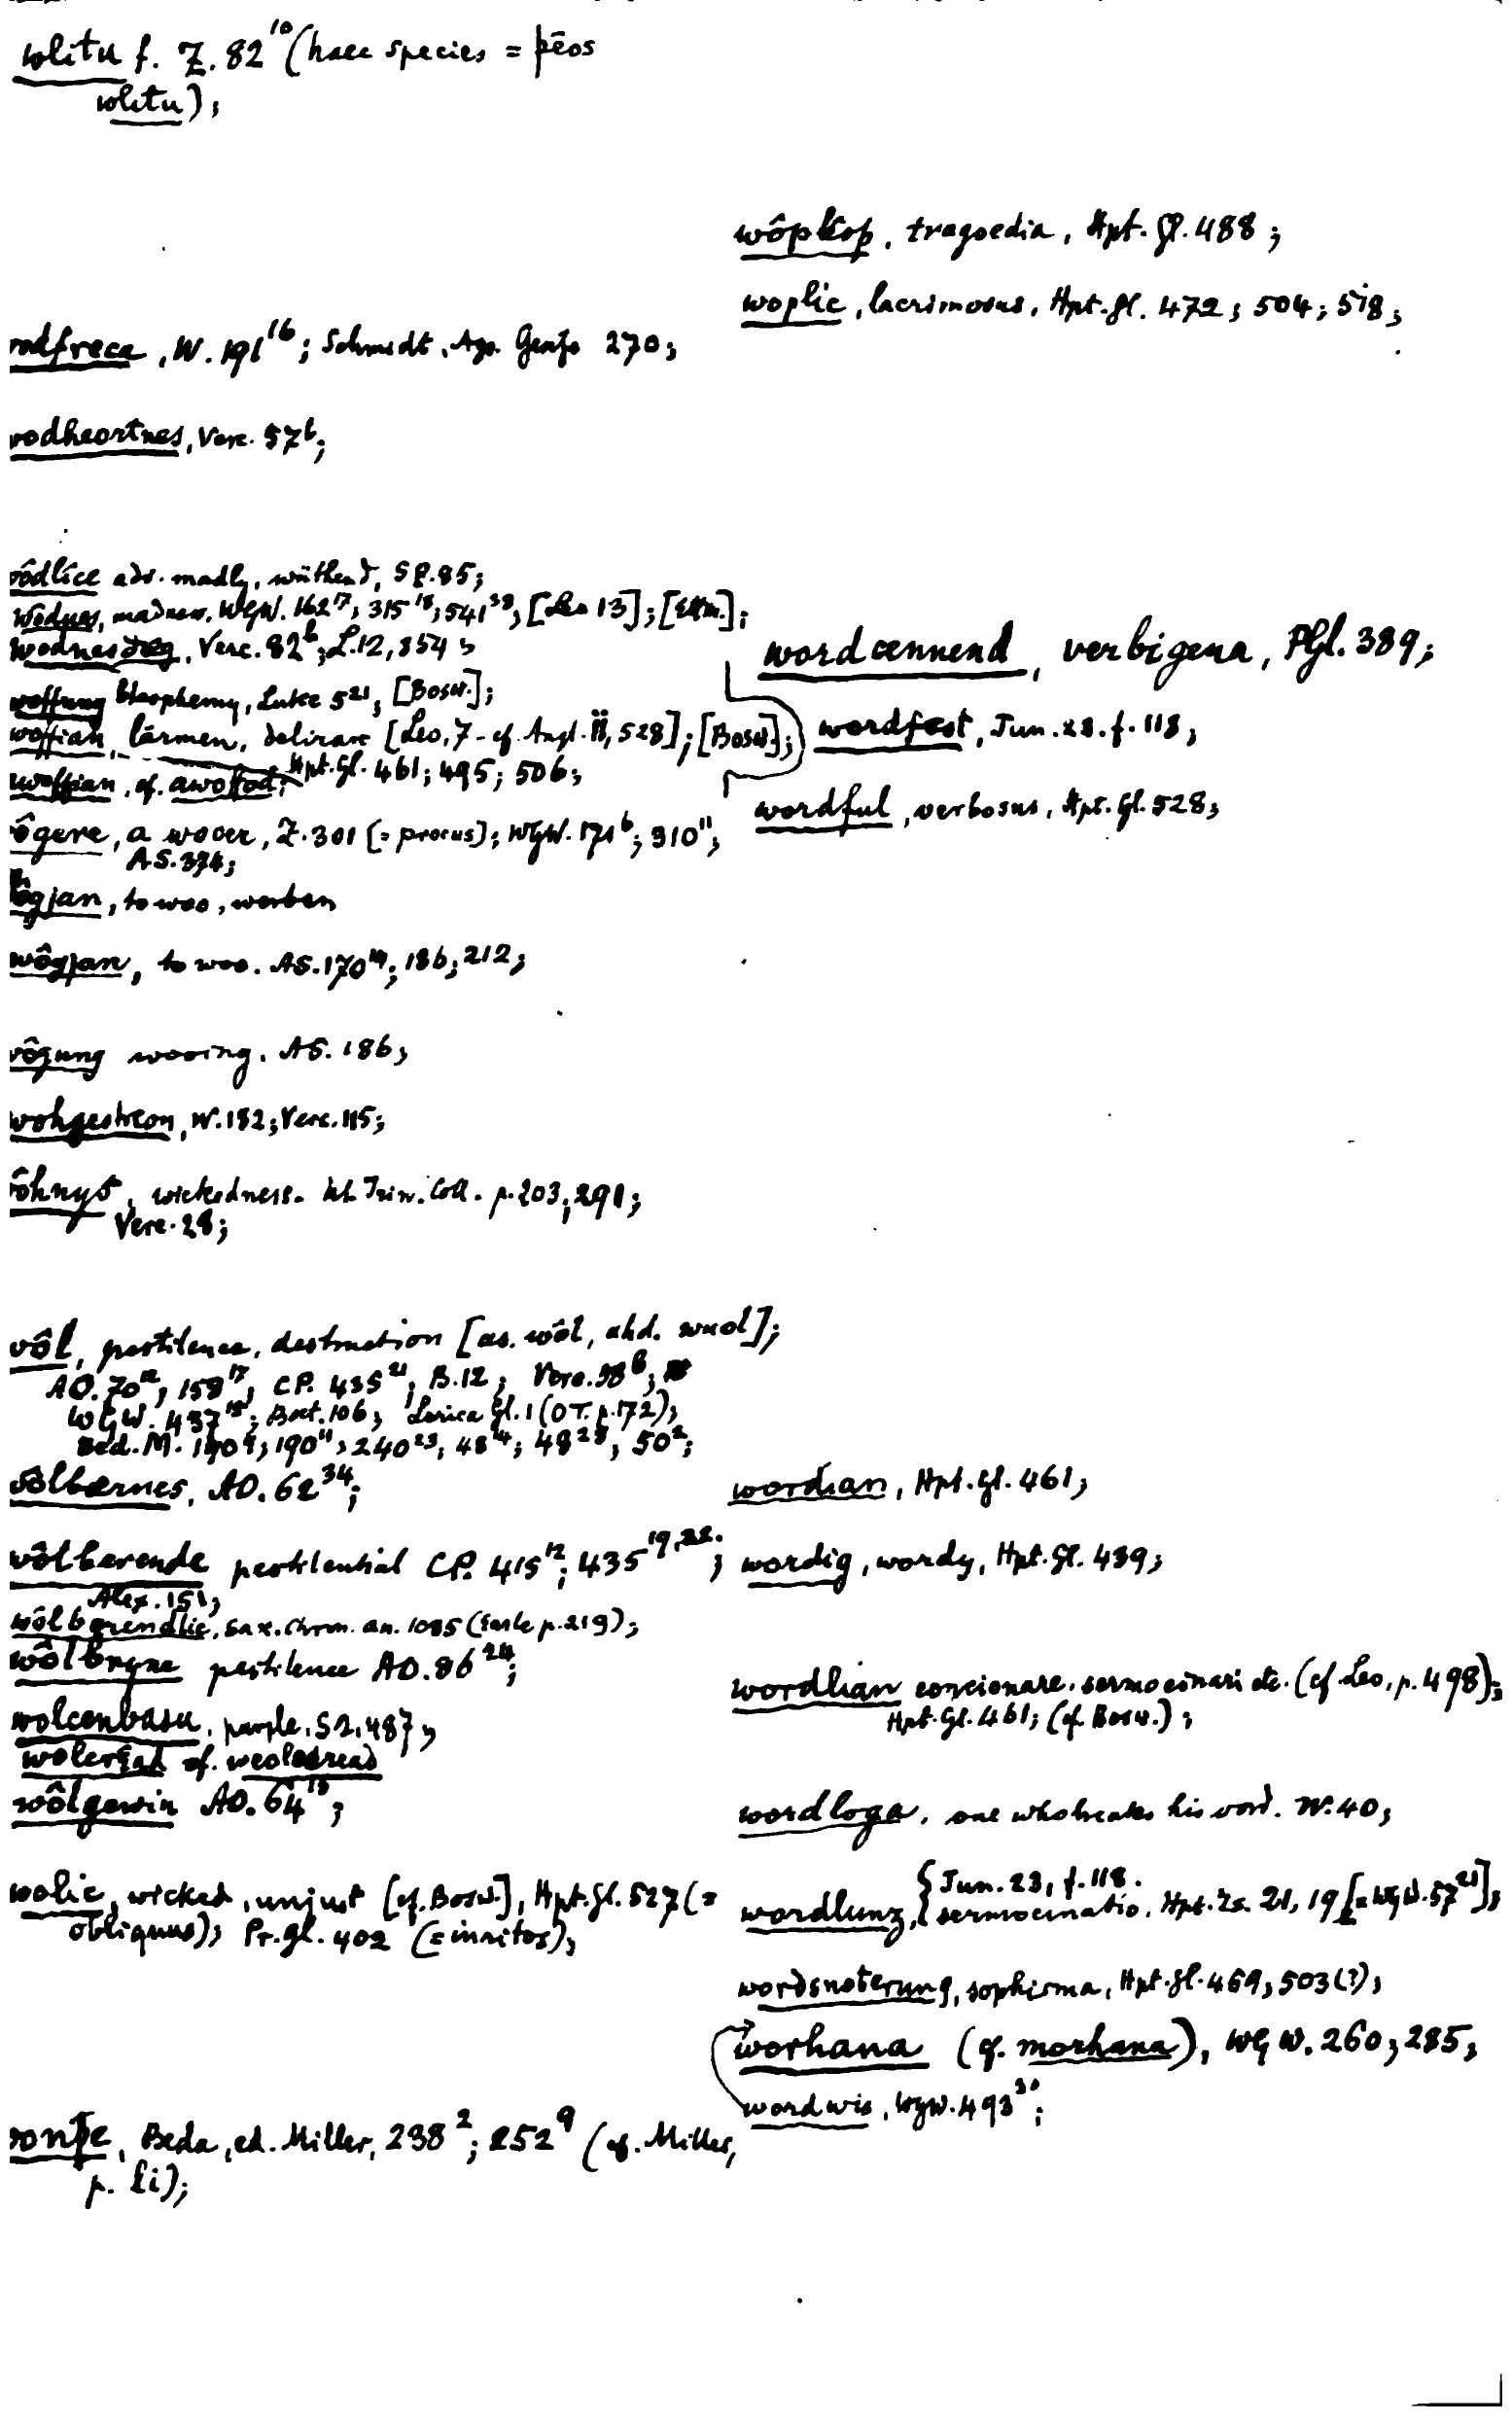 wlitu f. Z. 82¹⁰ (haec species = þēos
wlitu);
odfreca, W. 191¹⁶; Schmidt, Ags. Gesetze 270;
odheortnes, Verc. 57ᵇ;
ôdlîce adv. madly, wüthend, 85;
Wodnes, madness. WGW. 162¹⁷; 315¹⁸; 541³⁸; [Leo 13]; [Ettm.];
Wodnesdæg, Verc. 82ᵇ; L.12,854;
woffung blasphemy, Luke 5²¹, [Bosw.];
woffian, lärmen, delirare [Leo, 7 - cf. Angl. II, 528]; [Bosw.];
woffian, cf. awoffod; Hpt. Gl. 461; 495; 506;
ôgere, a wooer, Z. 301 (= procus); WGW. 171⁶; 310¹¹;
AS. 374;
ôgjan, to woo, werben
wôgjan, to woo. AS. 170¹⁹; 186; 212;
ôgung wooing. AS. 186;
wohgestreon, W. 182; Verc. 115;
ôhnys, wickedness. Trin. Coll. p. 203; 291;
Verc. 28;
ôl, pestilence, destruction [as. wôl, ahd. wuol];
AO. 70¹², 158¹⁷, CP. 435²¹, B. 12; Verc. 98ᵇ;
WGW. 437¹⁵; Boet. 106; Lorica Gl. 1 (OT. p. 172);
Bed. M. 190⁹; 190¹¹; 240²³, 48¹⁴; 48²⁸, 50²;
ôlbærnes, AO. 62³⁴;
wôlberende pestilential CP. 415¹²; 435¹⁹,²²;
Alex. 151;
wôlberendlic, Sax. Chron. an. 1085 (Earle p. 219);
wôlbryne pestilence AO. 86²⁴;
wolcenbasu, purple, S2,487;
cf. weolocread
wôlgewin AO. 64¹³;
wolic, wicked, unjust [cf. Bosw.], Hpt. Gl. 527 (=
obliquus); Pr. Gl. 402 (= inritos);
onþe, Beda, ed. Miller, 238²; 252⁹ (cf. Miller,
p. li);
wôplêoþ, tragoedia, Hpt. Gl. 488;
woplic, lacrimosus, Hpt. Gl. 472; 504; 518;
wordcennend, verbigena, PGl. 389;
wordfæst, Jun. 23. f. 118;
wordful, verbosus, Hpt. Gl. 528;
wordian, Hpt. Gl. 461;
wordig, wordy, Hpt. Gl. 439;
wordlian concionare, sermocinari etc. (cf Leo, p. 498);
Hpt. Gl. 461; (cf. Bosw.);
wordloga, one who breaks his word. W. 40;
wordlung, { Jun. 23, f. 118.
sermocinatio, Hpt. Zs. 21, 19 [= WGW. 57²¹];
wordsnoterung, sophisma, Hpt. Gl. 469; 503 (?);
worhana (cf. morhana), WGW. 260; 285;
wordwis, WGW. 493³⁰;